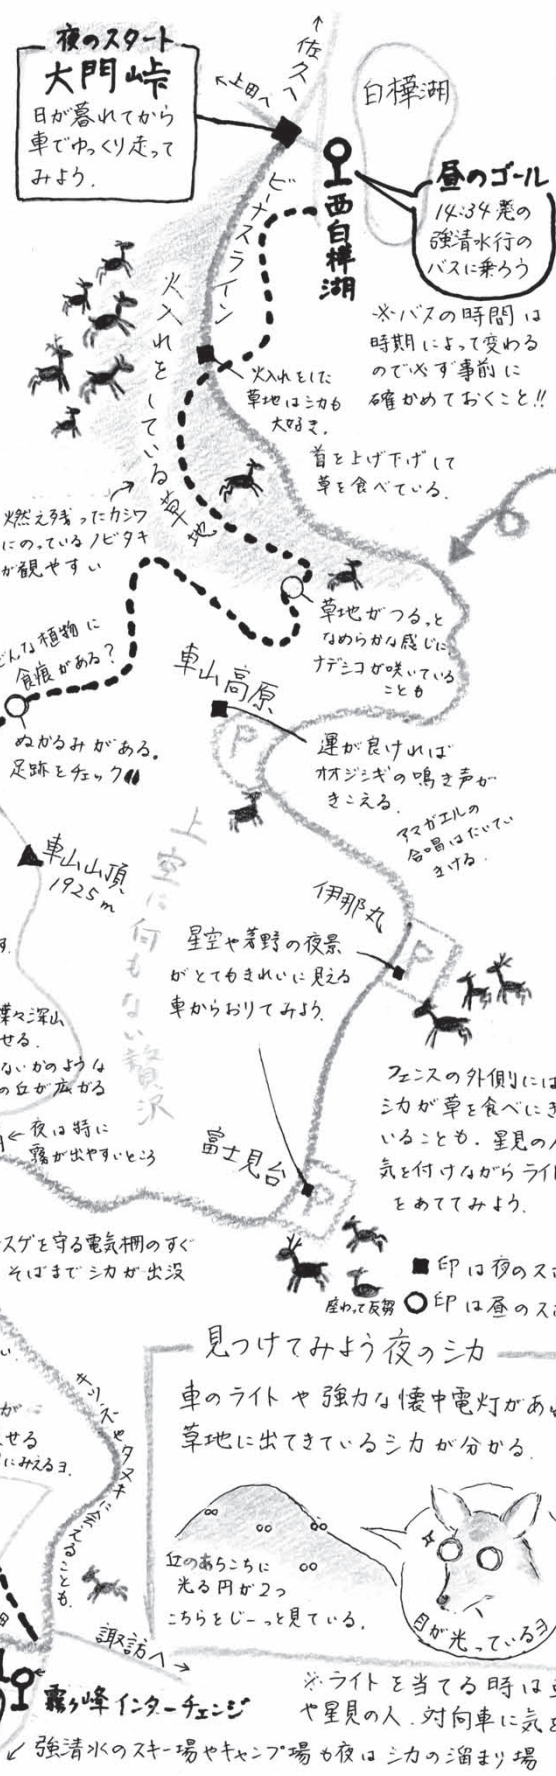 夜のスタート
大門峠
日が暮れてから
車でゆっくり走って
みよう.
↑佐久へ
←上田へ
白樺湖
昼のゴール
14:34発の
強清水行の
バスに乗ろう
西白樺湖
ビーナスライン
※バスの時間は
時期によって変わる
ので必ず事前に
確かめておくこと!!
火入れをしている草地
火入れをした
草地はシカも
大好き.
首を上げ下げして
草を食べている.
燃え残ったカシワ
にのっているノビタキ
が観やすい
草地がつるっと
なめらかな感じに,
ナデシコが咲いている
ことも
どんな植物に
食痕がある?
車山高原
P
ぬかるみがある.
足跡をチェック
運が良ければ
オオジシギの鳴き声が
きこえる.
アマガエルの
合唱はたいてい
きける.
上空に何もない贅沢
車山山頂
1925m
伊那丸
P
星空や茅野の夜景
がとてもきれいに見える
車からおりてみよう.
す.
葉々深山
せる.
ないかのような
の丘が広がる
←夜は特に
霧が出やすいところ
フェンスの外側には
シカが草を食べにき
いることも.星見の人
気を付けながらライト
をあててみよう.
富士見台
P
スゲを守る電気柵のすぐ
そばまでシカが出没
座わって反芻
■印は夜のス
○印は昼のス
見つけてみよう夜のシカ
車のライトや強力な懐中電灯があ
草地に出てきているシカが分かる.
丘のあちこちに
光る円が2つ
こちらをじーっと見ている.
目が光っているヨ
い.
が
せる
にみえるヨ.
キツネやタヌキに会えることも.
諏訪へ→
霧ヶ峰インターチェンジ
※ライトを当てる時は
や星見の人.対向車に気を
↙強清水のスキー場やキャンプ場も夜はシカの溜まり場